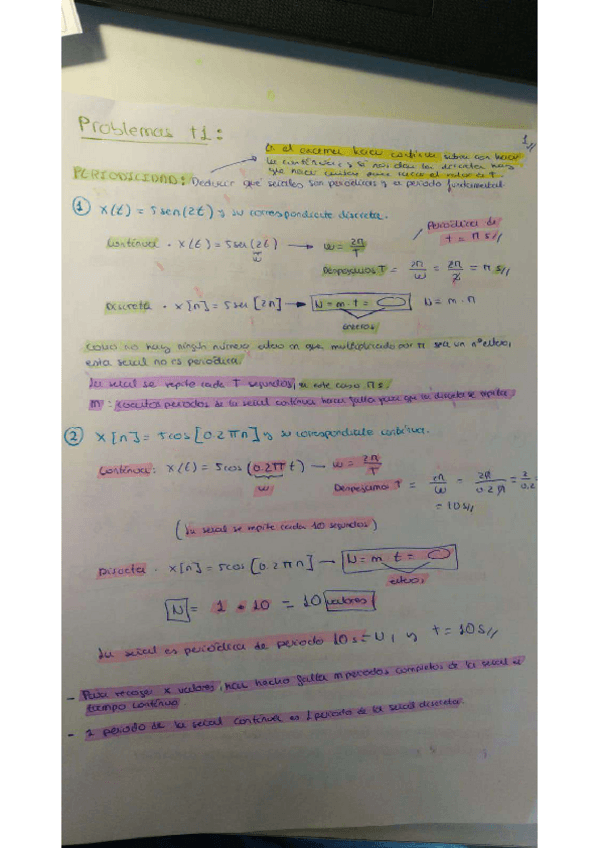 Problemas t1:
1//
En el examen hacer continua
las continuas y si nos dan las discretas hay
que hacer
PERIODICIDAD: Deducir qué señales son periódicas y su periodo fundamental.
① x(t) = 5sen(2t) y su correspondiente discreta.
Periódica de
t = π s//
Continua · x(t) = 5sen(2t) → ω = 2π/T
ω
Despejamos T = 2π/ω = 2π/2 = π s//
Discreta · x[n] = 5sen[2n] → N = m·t = N = m·π
enteros
Como no hay ningún número entero m que multiplicado por π sea un nº entero,
esta señal no es periódica.
La señal se repite cada T segundos, en este caso π s.
m: cuantos periodos de la señal continua hacen falta para que la discreta se repita.
② x[n] = 5cos[0.2πn] y su correspondiente continua.
Continua: x(t) = 5cos(0.2π t) → ω = 2π/T
ω
Despejamos T = 2π/ω = 2π/0.2π = 2/0.2
= 10s//
(La señal se repite cada 10 segundos)
Discreta · x[n] = 5cos[0.2πn] → N = m·t =
enteros
N = 1 · 10 = 10 valores
La señal es periódica de periodo 10s = N, y t = 10s//
- Para recoger x valores, han hecho falta m periodos completos de la señal en
tiempo continuo.
- 1 periodo de la señal continua es 1 periodo de la señal discreta.